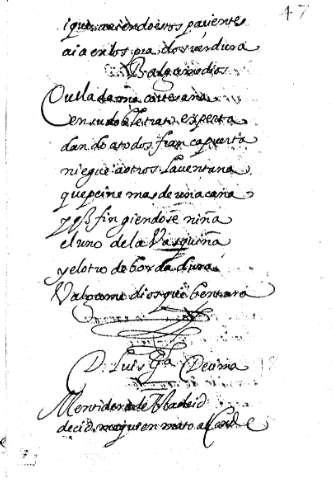 47
i que aciendo estos parientes
aia en los prados verdura
Balgame dios
Que una cortesana
en su doble trato experta
dando a todos franca puerta
niegue a otros la ventana
que peine mas de una cana
y que fingiendose niña
el uno de la basquiña
y el otro de bordadura
Valgame dios que bentura
D. Luis Gª Decima
Mentidero de Madrid
decidnos quien mato al Conde